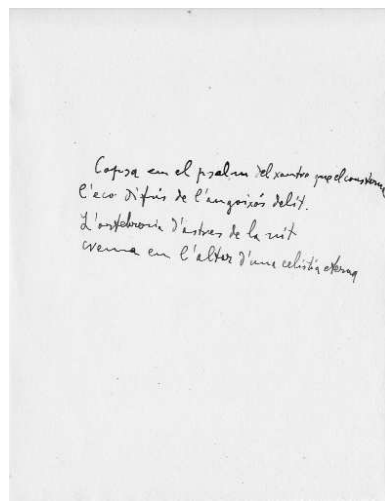 Copsa en el psalm del xantre que el consterna
l'eco difús de l'angoixós delit.
L'orfebreria d'astres de la nit
crema en l'altar d'una celístia eterna